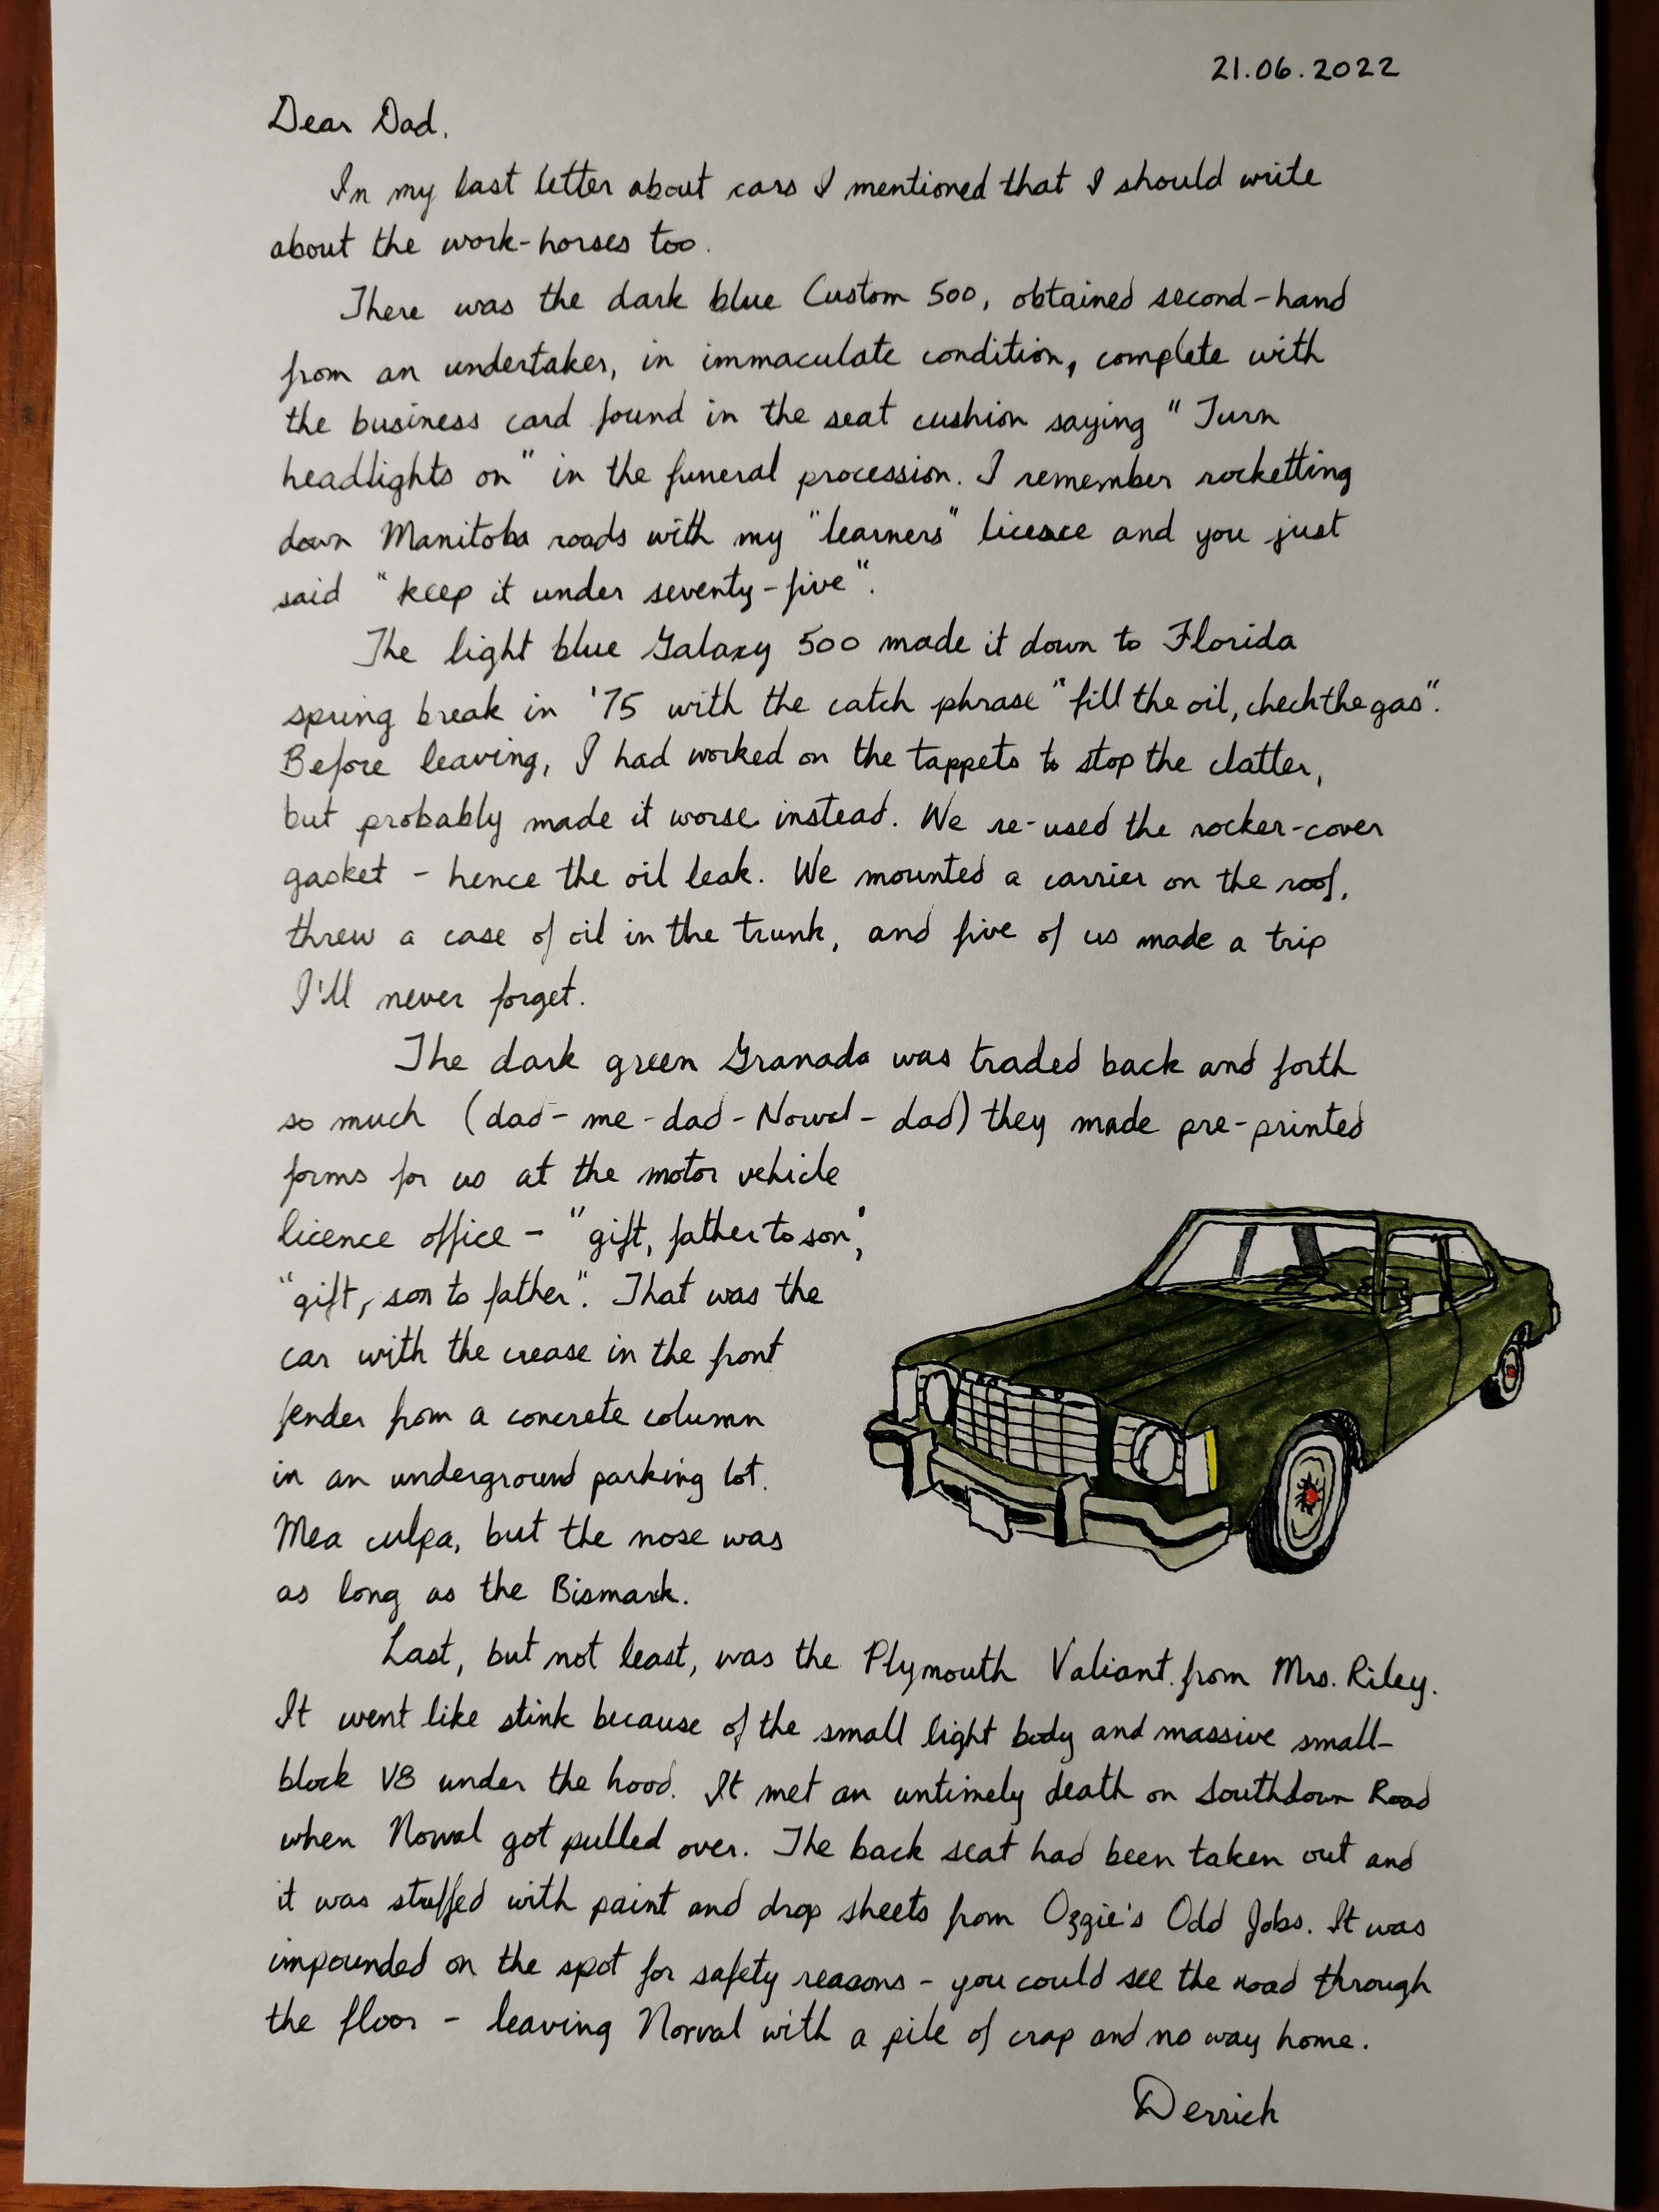 21.06.2022
Dear Dad,
In my last letter about cars I mentioned that I should write
about the work-horses too.
There was the dark blue Custom 500, obtained second-hand
from an undertaker, in immaculate condition, complete with
the business card found in the seat cushion saying "Turn
headlights on" in the funeral procession. I remember rocketting
down Manitoba roads with my "learners" licence and you just
said "keep it under seventy-five".
The light blue Galaxy 500 made it down to Florida
spring break in '75 with the catch phrase "fill the oil, check the gas".
Before leaving, I had worked on the tappets to stop the clatter,
but probably made it worse instead. We re-used the rocker-cover
gasket - hence the oil leak. We mounted a carrier on the roof,
threw a case of oil in the trunk, and five of us made a trip
I'll never forget.
The dark green Granada was traded back and forth
so much (dad-me-dad-Norval-dad) they made pre-printed
forms for us at the motor vehicle
licence office - "gift, father to son",
"gift, son to father". That was the
car with the crease in the front
fender from a concrete column
in an underground parking lot.
Mea culpa, but the nose was
as long as the Bismark.
Last, but not least, was the Plymouth Valiant from Mrs. Riley.
It went like stink because of the small light body and massive small-
block V8 under the hood. It met an untimely death on Southdown Road
when Norval got pulled over. The back seat had been taken out and
it was stuffed with paint and drop sheets from Ozzie's Odd Jobs. It was
impounded on the spot for safety reasons - you could see the road through
the floor - leaving Norval with a pile of crap and no way home.
Derrick